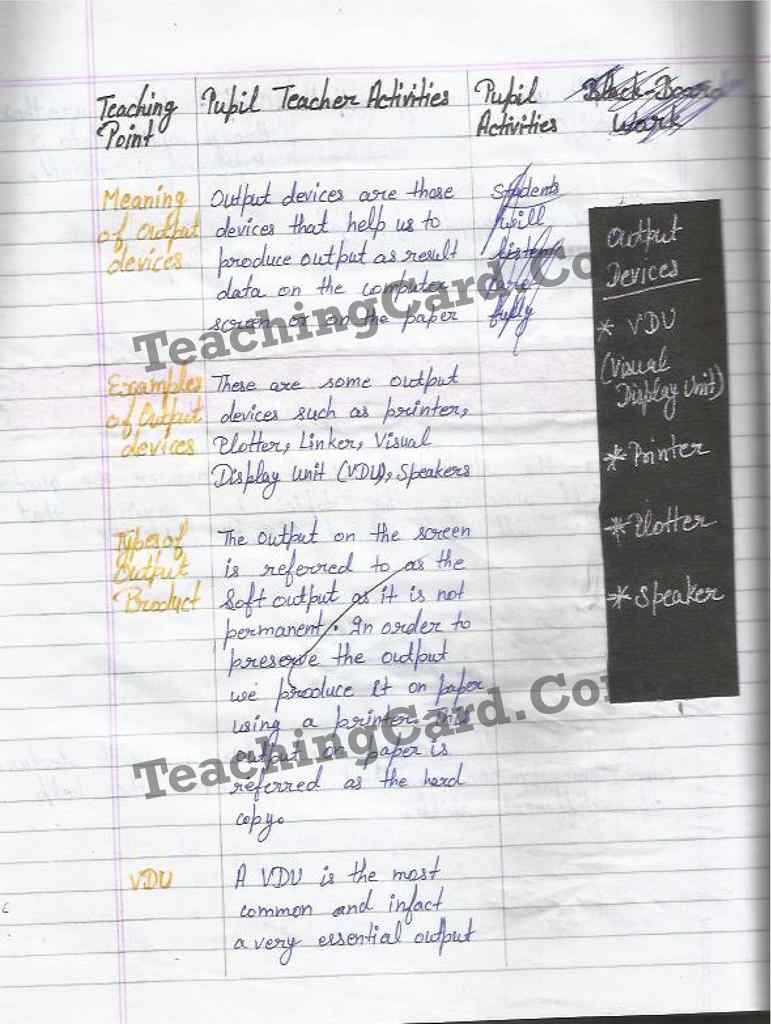 Teaching Point
Pupil Teacher Activities
Pupil Activities
Black-Board Work
Meaning of Output devices
Output devices are those
devices that help us to
produce output as result
data on the computer
screen or on the paper
Students
will
listen
care
fully
Output
Devices
* VDU
(Visual
Display Unit)
* Printer
* Plotter
* Speaker
TeachingCard.Co
Examples
of Output
devices
These are some output
devices such as printer,
Plotter, Linker, Visual
Display Unit (VDU), Speakers
Types of
Output
Product
The output on the screen
is referred to as the
Soft output as it is not
permanent. In order to
preserve the output
we produce it on paper
using a printer. This
output on paper is
referred as the hard
copy.
TeachingCard.Com
VDU
A VDU is the most
common and infact
a very essential output